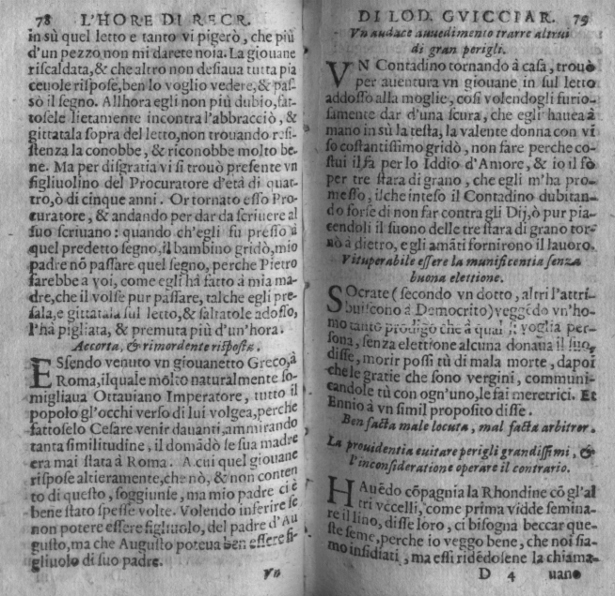 78 L'HORE DI RECR.
in sù quel letto e tanto vi pigerò, che più
d'un pezzo non mi darete noia. La giouane
riscaldata, & che altro non desiaua tutta pia
ceuole rispose, ben lo voglio vedere, & pas-
sò il segno. Allhora egli non più dubio, fat-
tosele lietamente incontra l'abbracciò, &
gittatala sopra del letto, non trouando resi-
stenza la conobbe, & riconobbe molto be-
ne. Ma per disgratia vi si trouò presente vn
figliuolino del Procuratore d'età di quat-
tro, ò di cinque anni. Or tornato esso Pro-
curatore, & andando per dar da scriuere al
suo scriuano: quando ch'egli fu presso à
quel predetto segno, il bambino gridò, mio
padre nõ passare quel segno, perche Pietro
farebbe a voi, come egli hà fatto à mia ma-
dre, che il volse pur passare, talche egli pre-
sala, e gittatala sul letto, & saltatole adosso,
l'hà pigliata, & premuta più d'un'hora.
Accorta, & rimordente risposta.
ESsendo venuto vn giouanetto Greco, à
Roma, ilquale molto naturalmente so-
migliaua Ottauiano Imperatore, tutto il
popolo gl'occhi verso di lui volgea, perche
fattoselo Cesare venir dauanti, ammirando
tanta similitudine, il domãdò se sua madre
era mai stata à Roma. A cui quel giouane
rispose altieramente, che nò, & non conten
to di questo, soggiunse, ma mio padre ci è
bene stato spesse volte. Volendo inferire se
non potere essere figliuolo, del padre d'Au
gusto, ma che Augusto poteua ben essere fi-
gliuolo di suo padre.
Vn
DI LOD. GVICCIAR. 79
Vn audace auuedimento trarre altrui
di gran perigli.
VN Contadino tornando à casa, trouò
per auentura vn giouane in sul letto
addosso alla moglie, così volendogli furio-
samente dar d'una scura, che egli hauea à
mano in sù la testa, la valente donna con vi
so costantissimo gridò, non fare perche co-
stui il fa per lo Iddio d'Amore, & io il fò
per tre stara di grano, che egli m'ha pro-
messo, ilche inteso il Contadino dubitan-
do forse di non far contra gli Dij, ò pur pia-
cendoli il suono delle tre stara di grano tor-
nò à dietro, e gli amãti fornirono il lauoro.
Vituperabile essere la munificentia senza
buona elettione.
SOcrate (secondo vn dotto, altri l'attri-
buiscono à Democrito) veggẽdo vn'ho-
mo tanto prodigo che à qual si voglia per-
sona, senza elettione alcuna donaua il suo,
disse, morir possi tù di mala morte, dapoi
che le gratie che sono vergini, communi-
candole tù con ogn'uno, le fai meretrici. Et
Ennio à vn simil proposito disse.
Ben facta male locuta, mal facta arbitror.
La prouidentia euitare perigli grandissimi, &
l'inconsideratione operare il contrario.
HAuẽdo cõpagnia la Rhondine cõ gl'al
tri vccelli, come prima vidde semina-
re il lino, disse loro, ci bisogna beccar que-
ste seme, perche io veggo bene, che noi sia-
mo insidiati, ma essi ridẽdosene la chiama-
D 4 uano